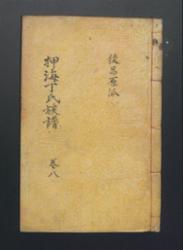 後呂五派
押海丁氏族譜
卷八